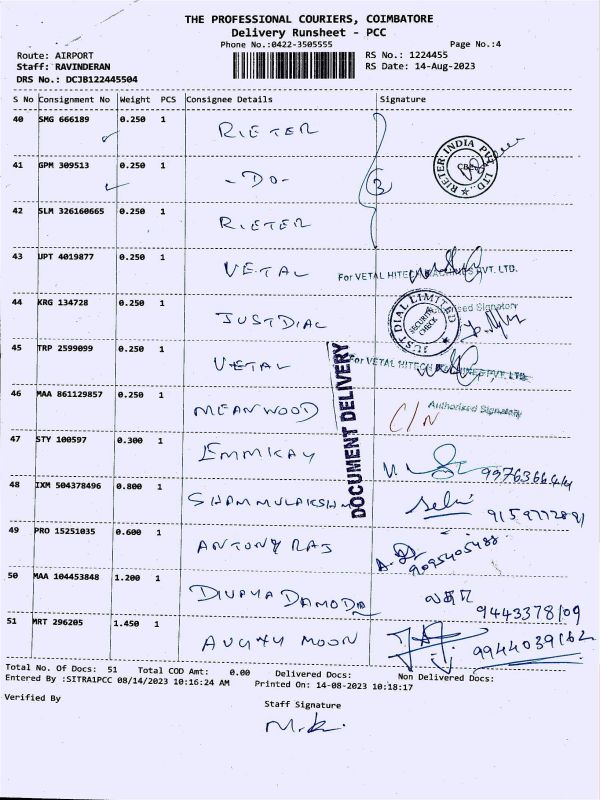 THE PROFESSIONAL COURIERS, COIMBATORE
Delivery Runsheet - PCC
Phone No.:0422-3505555 Page No.:4
Route: AIRPORT RS No.: 1224455
Staff: RAVINDERAN RS Date: 14-Aug-2023
DRS No.: DCJB122445504
S No Consignment No Weight PCS Consignee Details Signature
40 SMG 666189 0.250 1 RIETER
RIETER INDIA PVT. LTD.
41 GPM 309513 0.250 1 -DO- 3
42 SLM 326160665 0.250 1 RIETER
43 UPT 4019877 0.250 1 VETAL For VETAL HITECH MACHINES PVT. LTD.
Authorised Signatory
44 KRG 134728 0.250 1 JUSTDIAL JUST DIAL LIMITED SECURITY CHECK
45 TRP 2599099 0.250 1 VETAL For VETAL HITECH MACHINES PVT. LTD.
Authorised Signatory
46 MAA 861129857 0.250 1 MEANWOOD C/N
DOCUMENT DELIVERY
47 STY 100597 0.300 1 EMMKAY
48 IXM 504378496 0.800 1 9159772891
49 PRO 15251035 0.600 1 ANTONY RAJ 9095405488
50 MAA 104453848 1.200 1 DIVAYA 9443378109
51 MRT 296205 1.450 1 MOON 9944039162
Total No. Of Docs: 51 Total COD Amt: 0.00 Delivered Docs: Non Delivered Docs:
Entered By :SITRA1PCC 08/14/2023 10:16:24 AM Printed On: 14-08-2023 10:18:17
Verified By Staff Signature